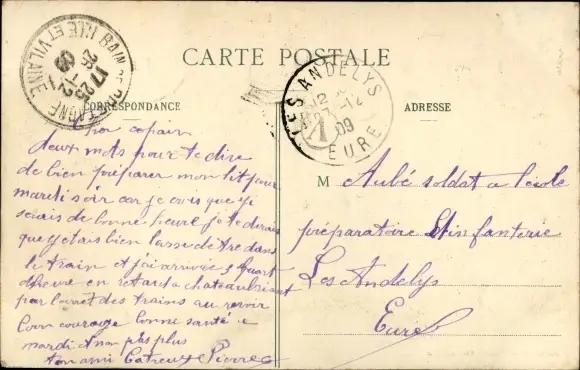 CARTE POSTALE
CORRESPONDANCE
ADRESSE
BAIN DE BRETAGNE
ILLE ET VILAINE
17 25
26 -12
09
LES ANDELYS
12
27 -12
09
EURE
mon copain
deux mots pour te dire
de bien préparer mon lit pour
mardi soir car je crois que j'y
serais de bonne heure je te dirais
que j'etais bien lassé de tre dans
le train et j'ai arrivée 3 quart
d'heure en retard a chateaubriant
par l'arret des trains au revoir
bon courage bonne santé a
mardi et non pas plus
ton ami Pierre
M Aubé soldat a l'école
préparatoire d'infanterie
Les Andelys
Eure